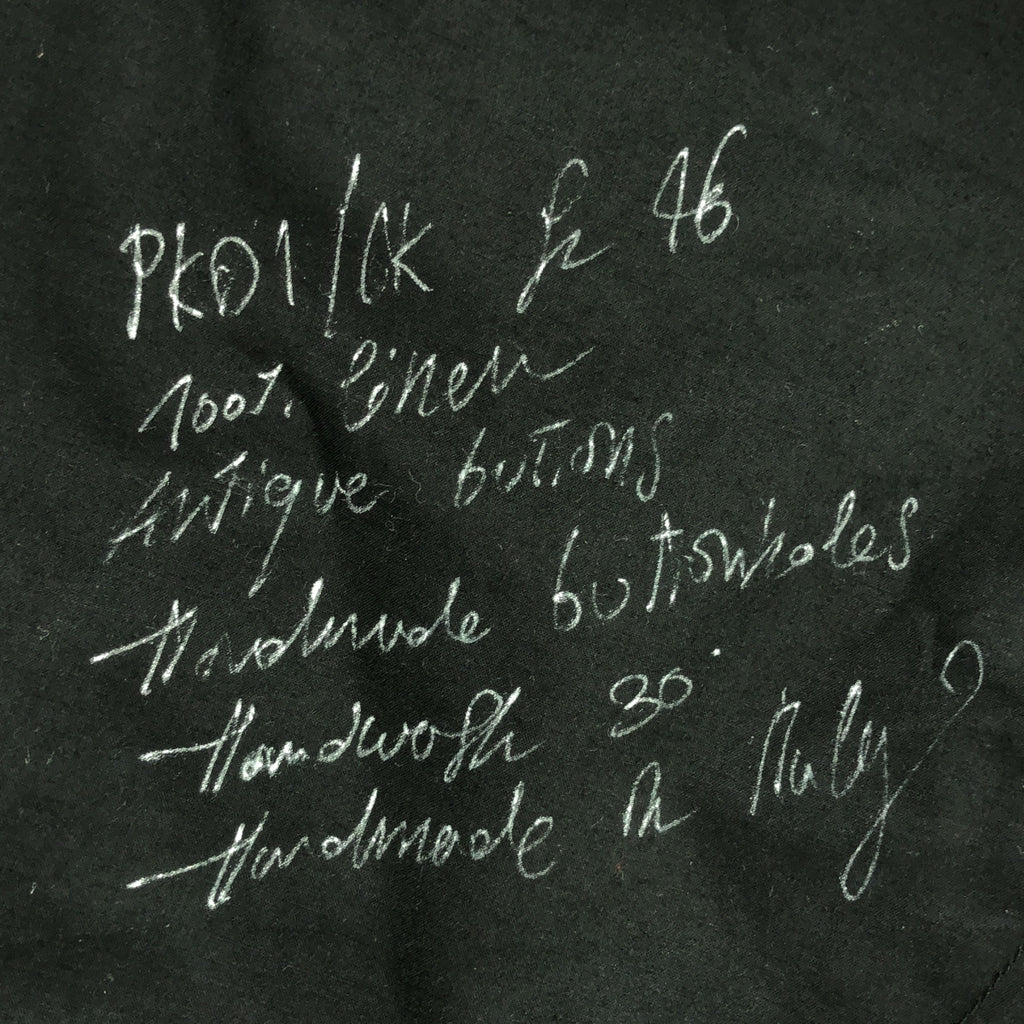 PKD1/AK 46
100% linen
Antique buttons
Handmade buttonholes
Handwash 30°
Handmade in Italy